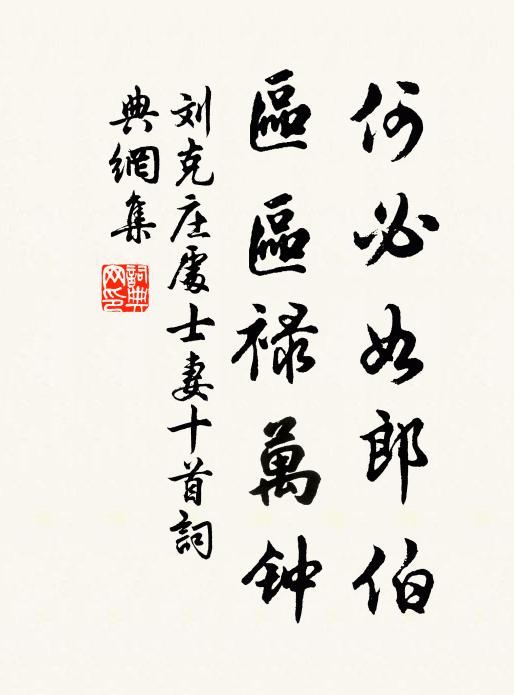 何必如郎伯
區區禄萬钟
刘克庄處士妻十首詞
典網集
詞典
网印